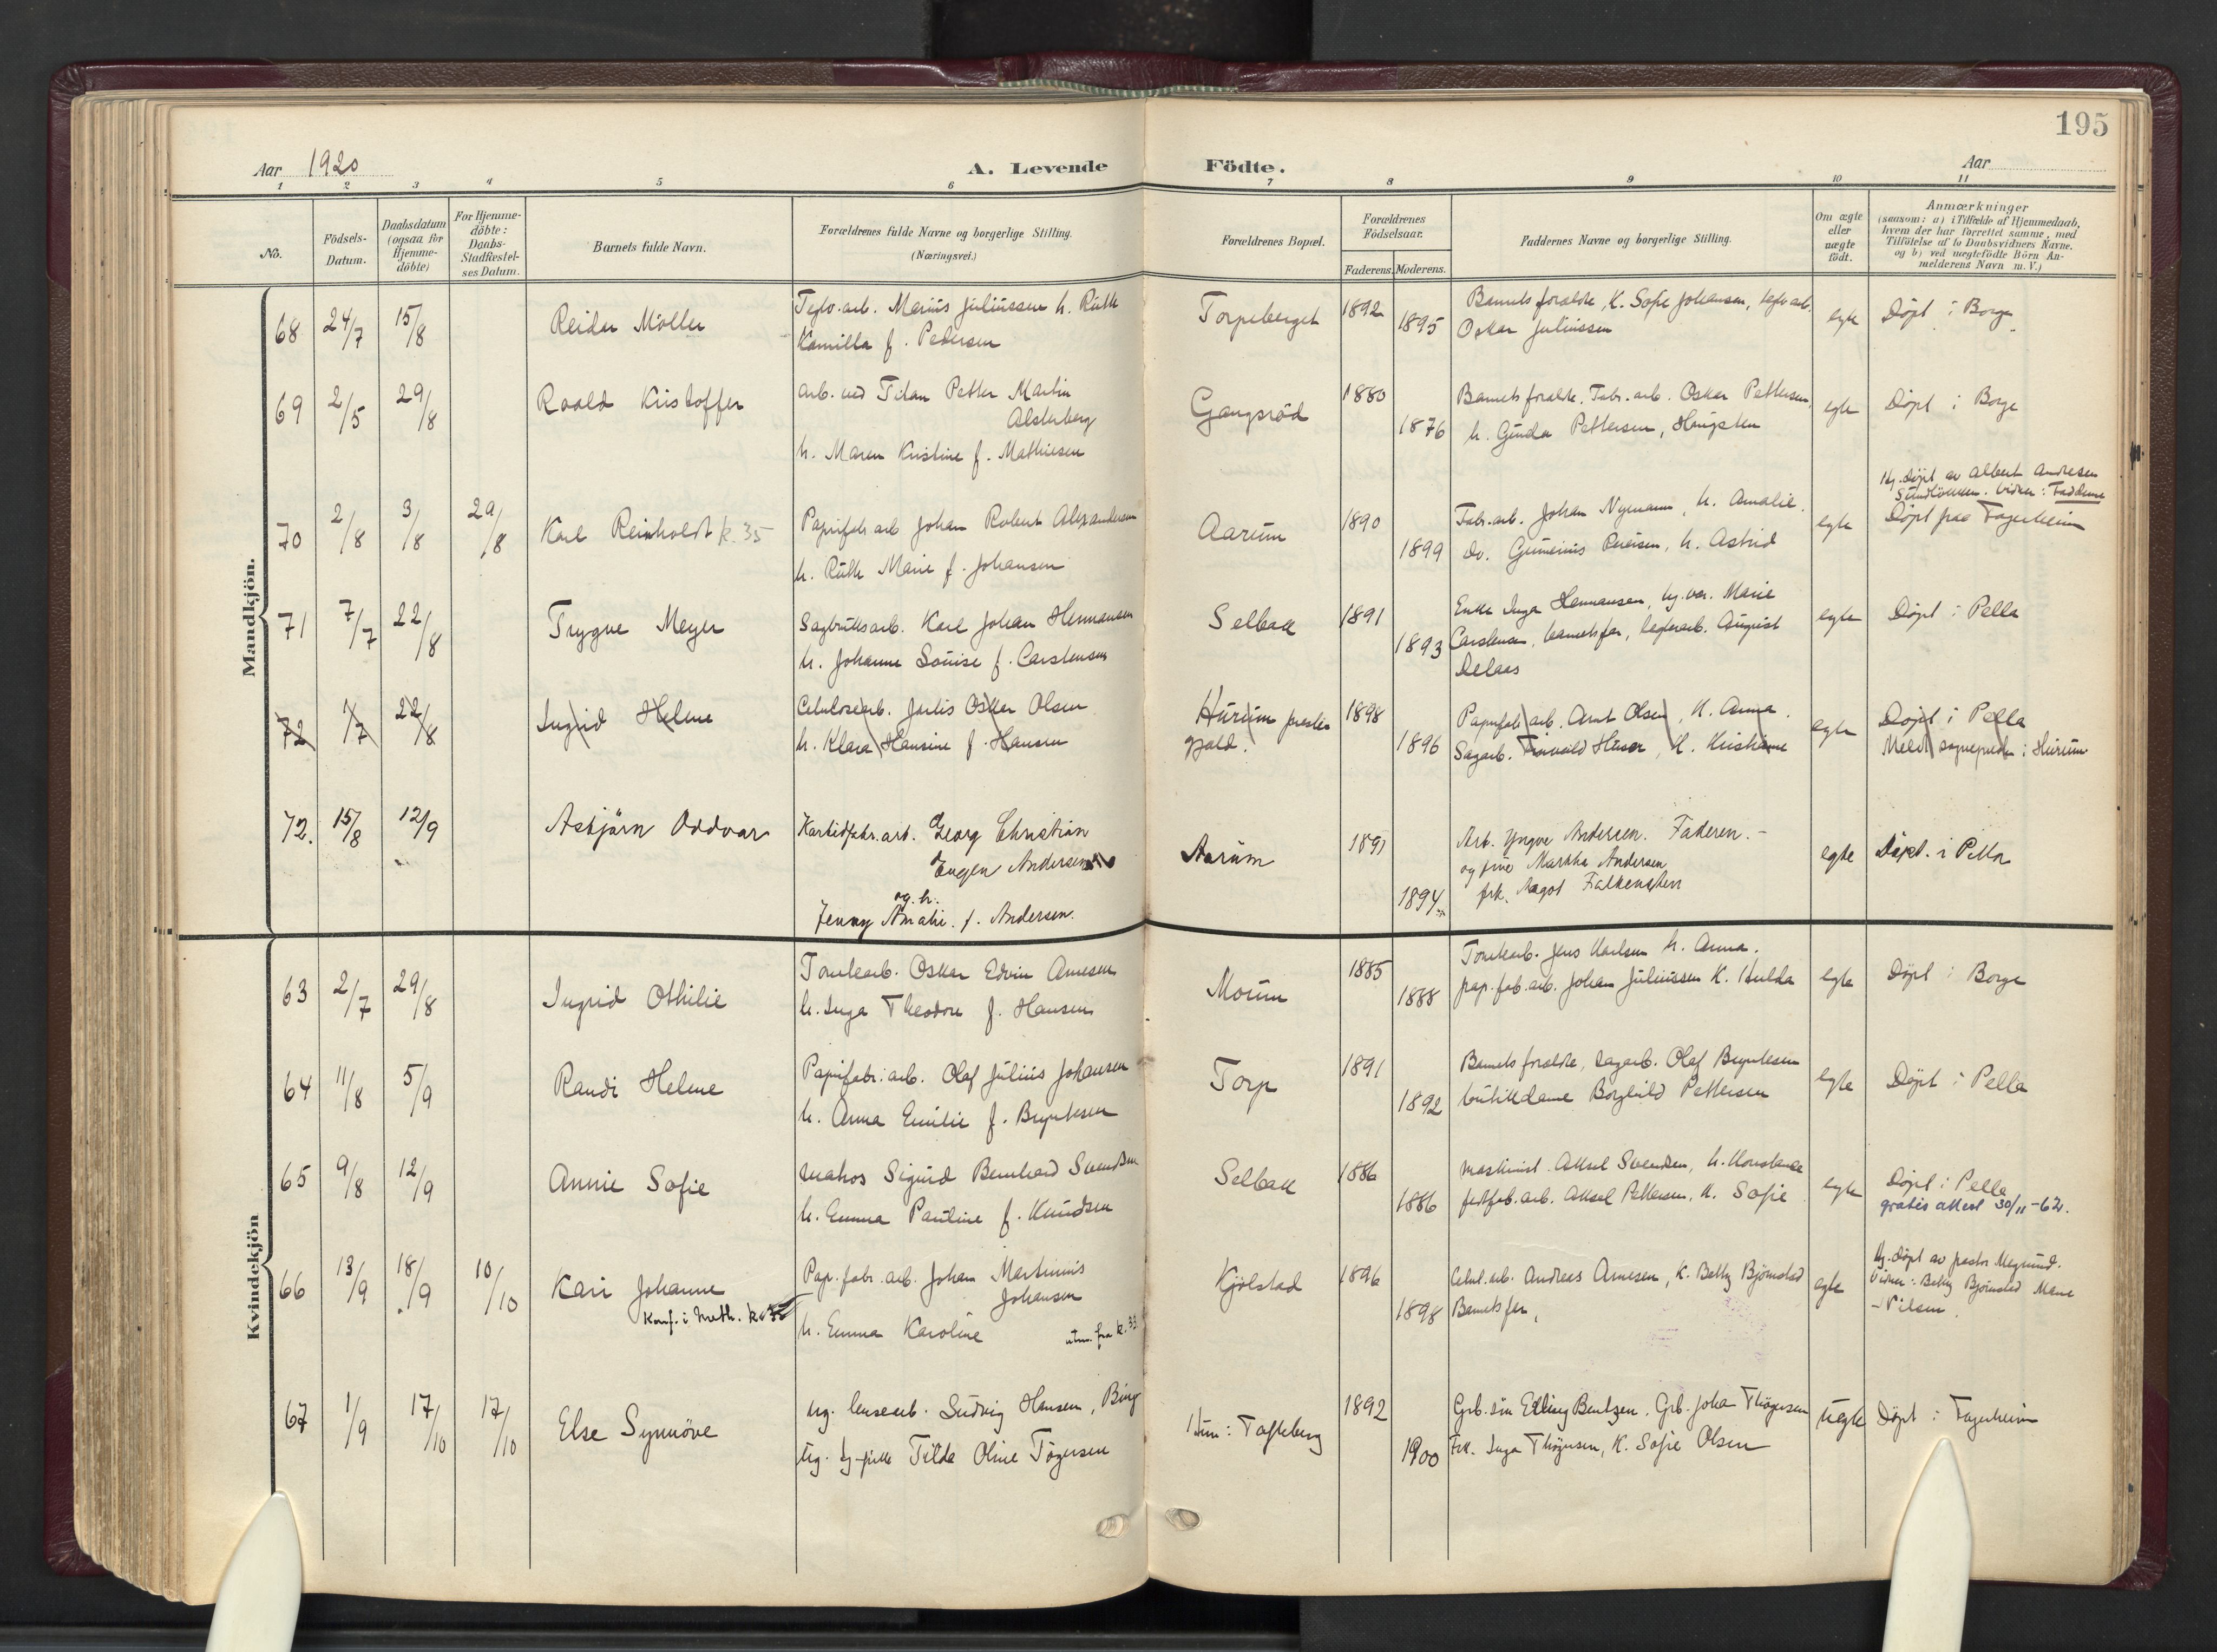 195
Aar 1920
A. Levende Födte.
Aar
1 2 3 4 5 6 7 8 9 10 11
No.
Födsels-
Datum.
Daabsdatum
(ogsaa for
Hjemme-
döbte)
For Hjemme-
döbte:
Daabs-
Stadfæstel-
ses Datum.
Barnets fulde Navn.
Forældrenes fulde Navne og borgerlige Stilling.
(Næringsvei.)
Forældrenes Bopæl.
Forældrenes
Födselsaar.
Faderens. Moderens.
Faddernes Navne og borgerlige Stilling.
Om ægte
eller
uægte
födt.
Anmærkninger
(saasom: a) i Tilfælde af Hjemmedaab,
hvem der har forrettet samme, med
Tilföielse af to Daabsvidners Navne.
og b) ved uægtefödte Börn An-
melderens Navn m. V.)
Mandkjön.
68 24/7 15/8 Reidar Möller
Teglv.arb. Marius Juliussen h. Ruth
Kamilla f. Pedersen
Torpeberget 1892 1895
Barnets foraldre, K. Sofie Johansen, teglv.arb.
Oskar Juliussen
egte Döpt i Borge
69 2/5 29/8 Roald Kristoffer
arb. ved Titan Petter Martin
Alsterberg
h. Maren Kristine f. Mathiesen
Gangsröd 1880 1876
Barnets foraldre, Fabr.arb. Oskar Pettersen,
h. Gunda Pettersen, Haugsten
egte Döpt i Borge
70 2/8 3/8 29/8 Karl Reinholdt k. 35
Papirfabr arb Johan Robert Alexandersen
h. Ruth Marie f. Johansen
Aarum 1890 1899
Fabr.arb. Johan Nymann, h. Amalie.
do. h. Astrid
egte
Hj. döpt av Albert Andresen
Sundlökken. Vidner: Fadderne
Döpt paa Fagerheim
71 7/7 22/8 Trygve Meyer
Sagbruksarb. Karl Johan Hermansen
h. Johanne Louise f. Carstensen
Selbak 1891 1893
Enke Inga Hermansen, Marie
Carstensen, barnets far, teglverarb. August
Delaas
egte Döpt i Pella
72 1/7 22/8 Ingrid Helene
Celulosearb. Oskar Olsen
h. Klara Hansine f. Hansen
Hurum preste
gjeld. 1898 1896
Papirfabr arb. Arnt Olsen, K. Anna.
Sagarb. K. Kristiane
egte Döpt i Pella
Meldt sogneprest i Hurum
72. 15/8 12/9 Asbjörn Oddvar
Karbidfabr.arb. Georg Christian
Eugen Andersen
og h.
Jenny Amalie. f. Andersen.
Aarum 1891 1894
Arb. Yngve Andersen. Faderen. -
og frue Martha Andersen
frk. Aagot Falkensten
egte Döpt. i Pella
Kvindekjön
63 2/7 29/8 Ingrid Othilie
Tomtearb. Oskar Edvin Arnesen
h. Inga Theodora f. Hansen
Moum 1885 1888
Tomtearb. Jens Karlsen h. Anna.
pap.fab.arb. Johan Juliussen K. Hulda
egte Döpt i Borge
64 11/8 5/9 Randi Helene
Papirfabr. arb. Olaf Julius Johansen
h. Anna Emilie f. Bryntesen
Torp 1891 1892
Barnets foraldre, sagarb. Olaf Bryntesen
butikkdame Borghild Pettersen
egte Döpt i Pella
65 9/8 12/9 Annie Sofie
matros Sigurd Bernhard Svendsen
h. Emma Pauline f. Knudsen
Selbak 1886 1886
maskinist Aksel Svendsen, h. Konstanse
fab.arb. Aksel Pettersen, K. Sofie
egte Döpt i Pella
gratis attest 30/11-62.
66 13/9 18/9 10/10 Kari Johanne
Konf. i Meth. k. 35
Pap. fabr. arb. Johan Martinius
Johansen
h. Emma Karoline utm. fra k. 33
Kjölstad 1896 1898
Celul.arb. Andreas Arnesen, K. Betty Björnstad
Barnets far,
egte
Hj. döpt av pastor
Vidner: Betty Björnstad Marie
Nilsen.
67 1/9 17/10 17/10 Else Synnöve
ug. lensearb. Ludvig Hansen, Borge
ug. Tilda Oline Tögersen
Hun: Tofteberg 1892 1900
Grb. sön Elling Bentzen, Grb. Johan Thögersen
Frk. Inga Thögersen, K. Sofie Olsen
uegte Döpt i Fagerheim